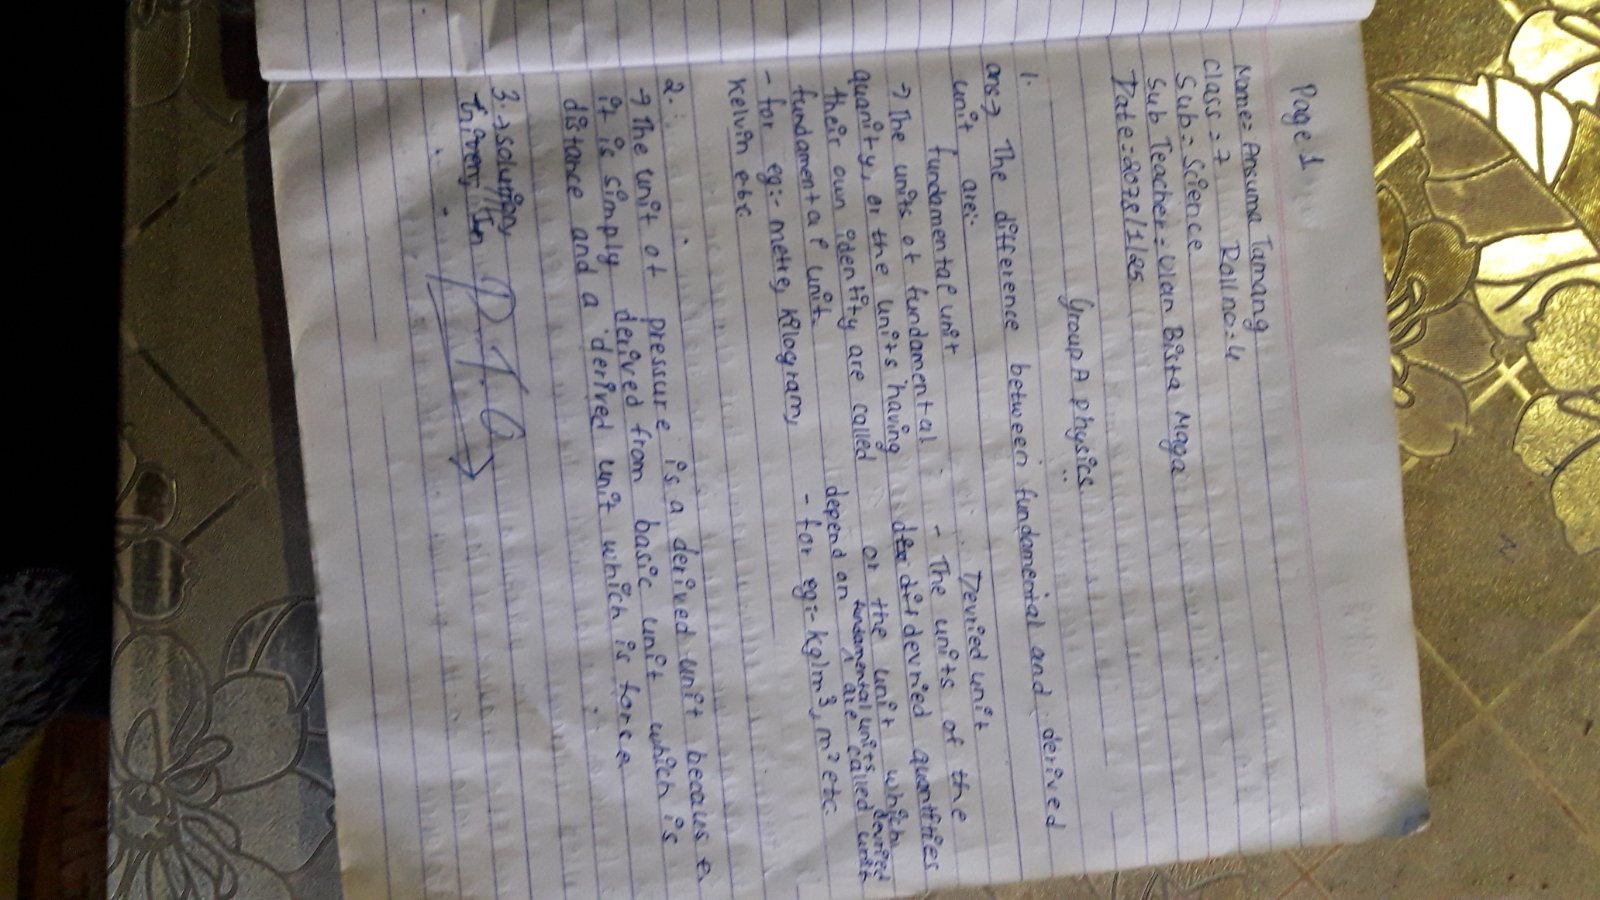 Page 1
Name = Ansuma Tamang
Class = 7 Roll no:- 4
Sub = Science
Sub Teacher = Bista
Date = 2078/1/25
Group A physics
1.
ans→ The difference between fundamental and derived
unit are:-
fundamental unit
→ The units of fundamental
quanity, or the units having
their own identity are called
fundamental unit.
- for eg:- metre, kilogram,
kelvin etc.
Devried unit
- The units of the
devried quantities
or the unit which
depend on fundamental units devried
are called unit
- for eg:- kg/m³, m² etc.
2.
→ The unit of pressure is a derived unit because
it is simply derived from basic unit which is
distance and a derived unit which is force
3.→ solution,
In
P.T.O